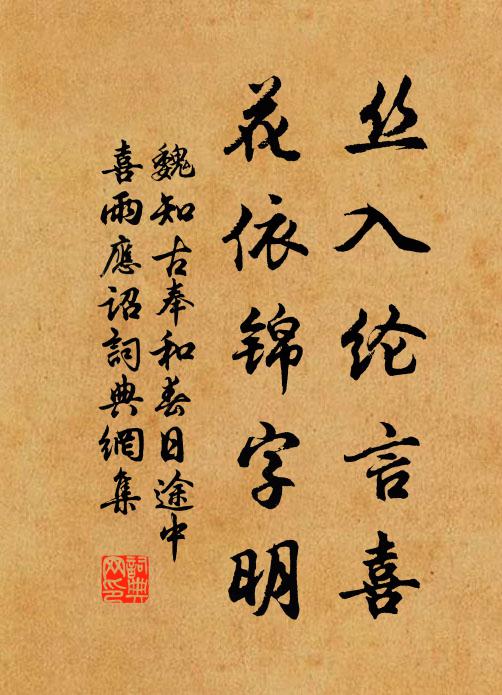 丝入纶言喜
花依锦字明
魏知古奉和春日途中
喜雨應诏詞典網集
詞典网印